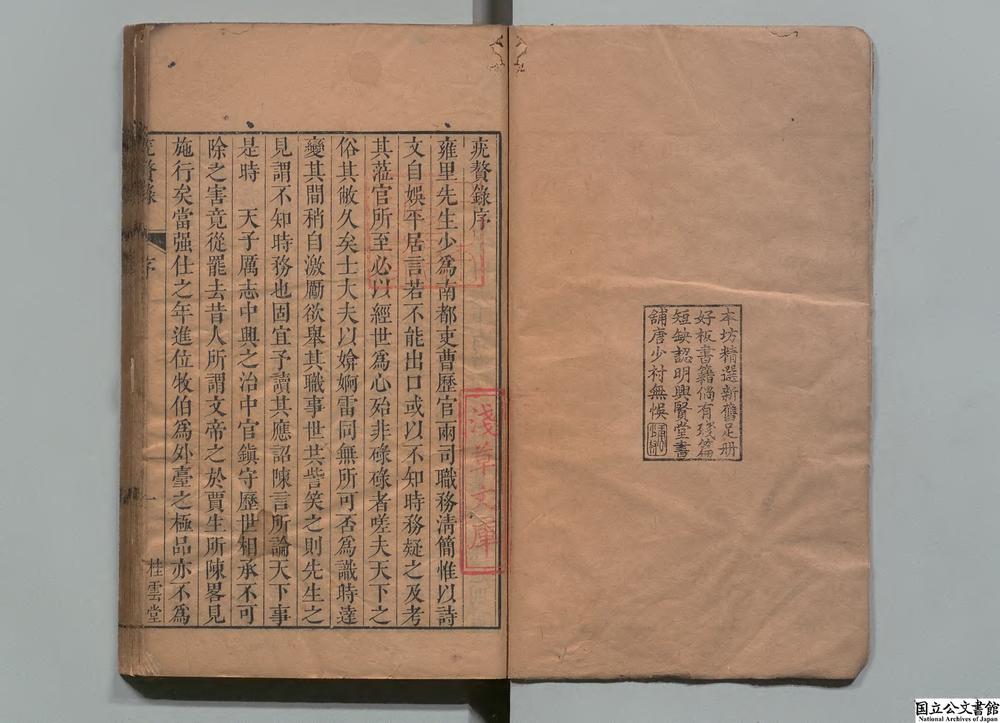 本坊精選新舊足冊
好板書籍倘有殘篇
短缺認明興賢堂書
舖唐少村無悞
疣贅錄序
雍里先生少爲南都吏曹歷官兩司職務淸簡惟以詩
文自娛平居言若不能出口或以不知時務疑之及考
其蒞官所至必以經世爲心殆非碌碌者嗟夫天下之
俗其敝久矣士大夫以媕婀雷同無所可否爲識時達
變其間稍自激勵欲舉其職事世共訾笑之則先生之
見謂不知時務也固宜予讀其應詔陳言所論天下事
是時　天子厲志中興之治中官鎮守歷世相承不可
除之害竟從罷去昔人所謂文帝之於賈生所陳畧見
施行矣當强仕之年進位牧伯爲外臺之極品亦不爲
疣贅錄
序
一
桂雲堂
淺草文庫
国立公文書館
National Archives of Japan